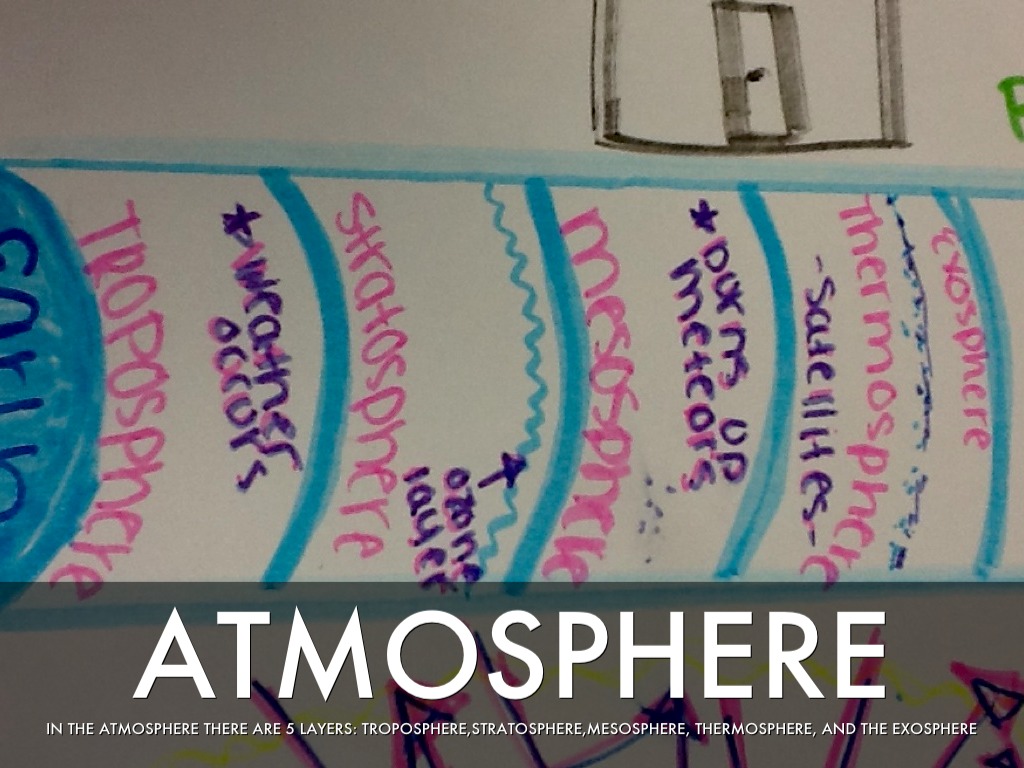 Earth
TROPOSPHERE
*weather
occurs
stratosphere
ozone
layer
mesosphere
*burns up
meteors
-satellites-
thermosphere
exosphere
ATMOSPHERE
IN THE ATMOSPHERE THERE ARE 5 LAYERS: TROPOSPHERE,STRATOSPHERE,MESOSPHERE, THERMOSPHERE, AND THE EXOSPHERE